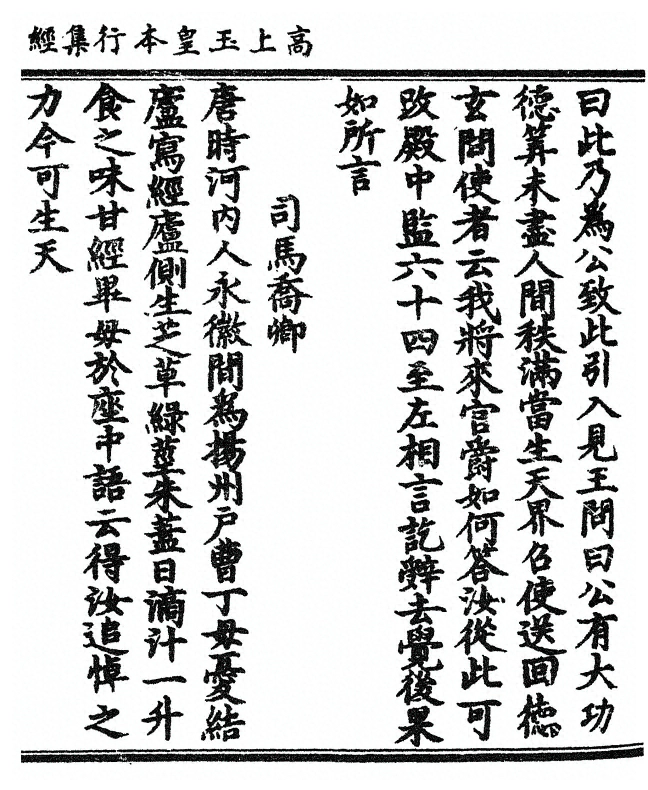 高上玉皇本行集經
曰此乃為公致此引入見王問曰公有大功
德筭未盡人間秩滿當生天界召使送回德
玄問使者云我將來官爵如何答汝從此可
改殿中監六十四至左相言訖辭去覺後果
如所言
司馬喬卿
唐時河內人永徽間為揚州戶曹丁母憂結
廬寫經廬側生芝草綠莖朱蓋日滴汁一升
食之味甘經畢母於座中語云得汝追悼之
力今可生天